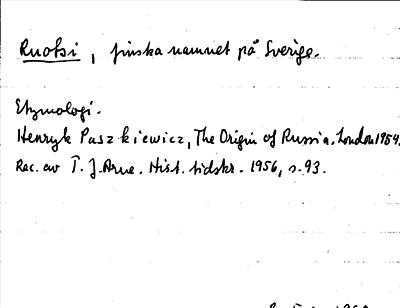 Ruotsi, finska namnet på Sverige.
Etymologi.
Henryk Paszkiewicz, The Origin of Russia. London 1954.
Rec. av T. J. Arne. Hist. tidskr. 1956, s. 93.